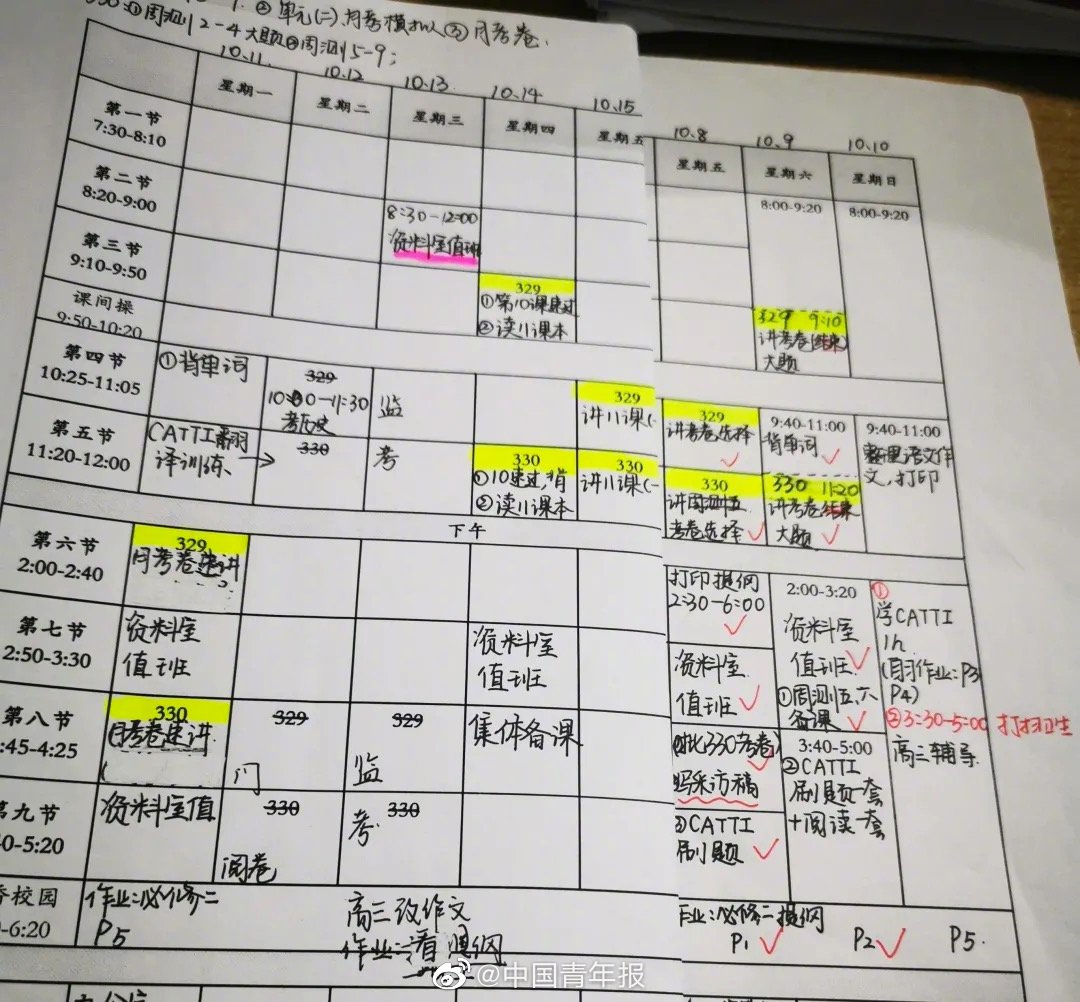 ②单元(二)、月考模拟、③月考卷.
周测12-4大题②周测5-9;
10.11 10.12 10.13 10.14 10.15
星期一 星期二 星期三 星期四 星期五
第一节
7:30-8:10
第二节
8:20-9:00
8:30-12:00
资料室值班
第三节
9:10-9:50
329
①第10课速过
②读11课本
课间操
9:50-10:20
第四节
10:25-11:05
①背单词
329
10:00-11:30
考历史
监
329
讲11课(一
第五节
11:20-12:00
CATTI翻
译训练
330
考
330
①10速过,背
②读11课本
330
讲11课(一
下午
第六节
2:00-2:40
329
月考卷速讲
第七节
2:50-3:30
资料室
值班
资料室
值班
第八节
:45-4:25
330
月考卷速讲
329
329
监
集体备课
第九节
0-5:20
资料室值
330
阅卷
330
考
校园
-6:20
作业:必修二
P5
高三改作文
作业:看提纲
10.8 10.9 10.10
星期五 星期六 星期日
8:00-9:20 8:00-9:20
329 9:10
讲考卷(结束)
大题
329
讲考卷选择
9:40-11:00
背单词
9:40-11:00
整理语文作
文,打印
330
讲周测五
考卷选择
330 11:20
讲考卷结束
大题
打印提纲
2:30-6:00
2:00-3:20
资料室
值班
①周测五、六
备课
①
学CATTI
1h
(自习作业:P3
P4)
②3:30-5:00 打扫卫生
高三辅导
资料室
值班
(对比330考卷)
妈采访稿
③CATTI
刷题
3:40-5:00
②CATTI
刷题一套
+阅读一套
作业:必修二提纲
P1 P2 P5.
@中国青年报